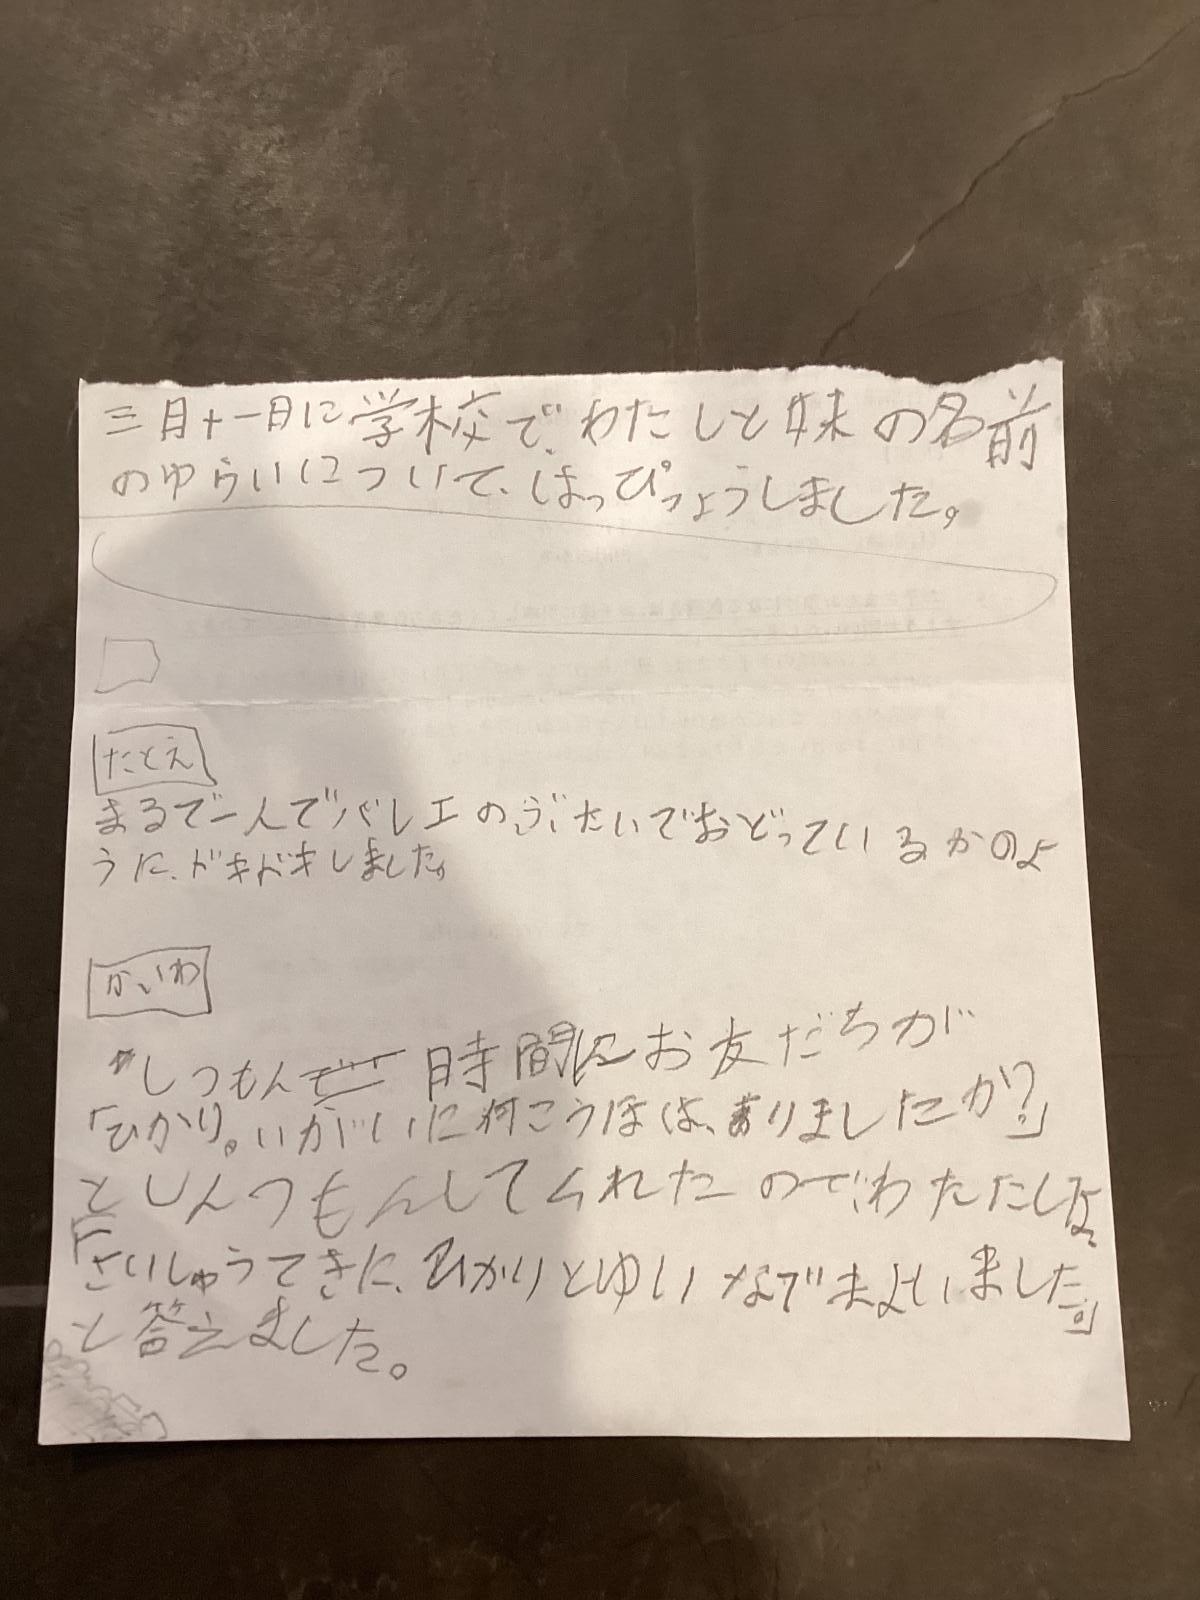 三月十一日に学校で、わたしと妹の名前
のゆらいについて、はっぴょうしました。
たとえ
まるで一人でバレエのぶたいでおどっているかのよ
うに、ドキドキしました。
かいわ
しつもん時間にお友だちが
「ひかり。いがいに何こうほは、ありましたか?」
としんつもんしてくれたのでわたたしは、
「さいしゅうてきに、ひかりとゆいなでまよいました。」
と答えました。